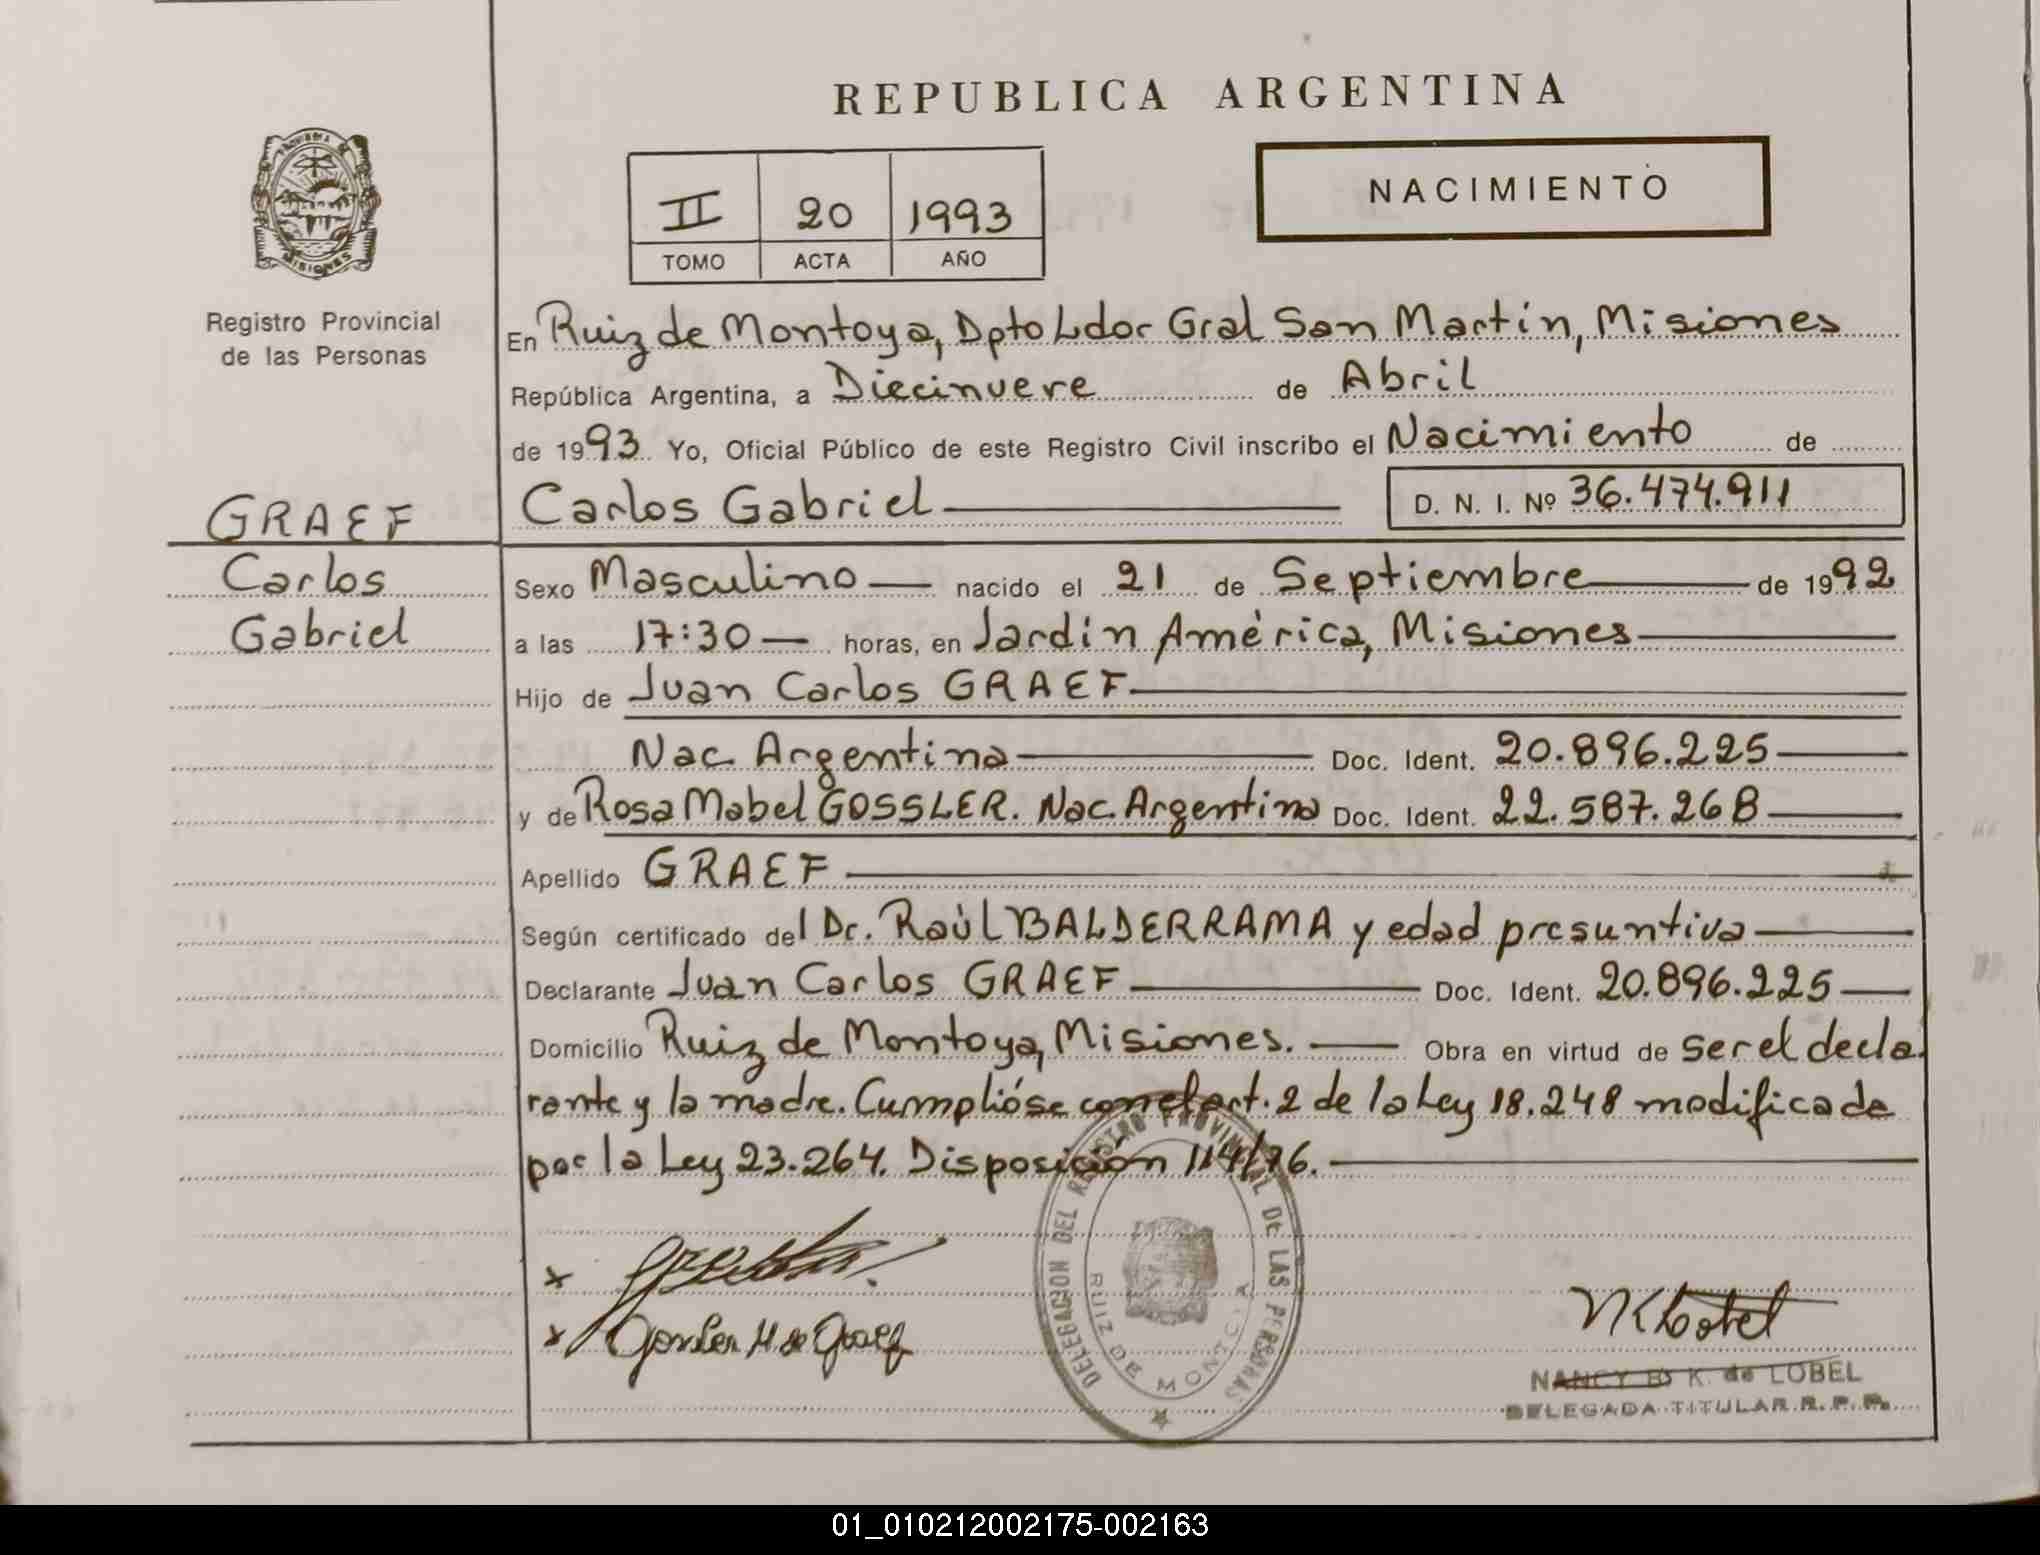 REPUBLICA ARGENTINA
NACIMIENTO
II 20 1993
TOMO ACTA AÑO
PROVINCIA DE
MISIONES
Registro Provincial
de las Personas
En Ruiz de Montoya, Dpto Ldor Gral San Martín, Misiones
República Argentina, a Diecinueve de Abril
de 1993 Yo, Oficial Público de este Registro Civil inscribo el Nacimiento de
GRAEF
Carlos Gabriel D. N. I. Nº 36.474.911
Carlos
Gabriel
Sexo Masculino nacido el 21 de Septiembre de 1992
a las 17:30 horas, en Jardín América, Misiones
Hijo de Juan Carlos GRAEF
Nac. Argentina Doc. Ident. 20.896.225
y de Rosa Mabel GOSSLER. Nac. Argentina Doc. Ident. 22.587.268
Apellido GRAEF
Según certificado del Dr. Raúl BALDERRAMA y edad presuntiva
Declarante Juan Carlos GRAEF Doc. Ident. 20.896.225
Domicilio Ruiz de Montoya, Misiones. Obra en virtud de ser el decla
rante y la madre. Cumplióse con el art. 2 de la Ley 18.248 modificada
por la Ley 23.264. Disposición 114/76.
DELEGACION DEL REGISTRO PROVINCIAL DE LAS PERSONAS
RUIZ DE MONTOYA
x
x Gossler M de Graef
NKLobel
NANCY E. K. de LOBEL
DELEGADA TITULAR R. P. P.
01_010212002175-002163